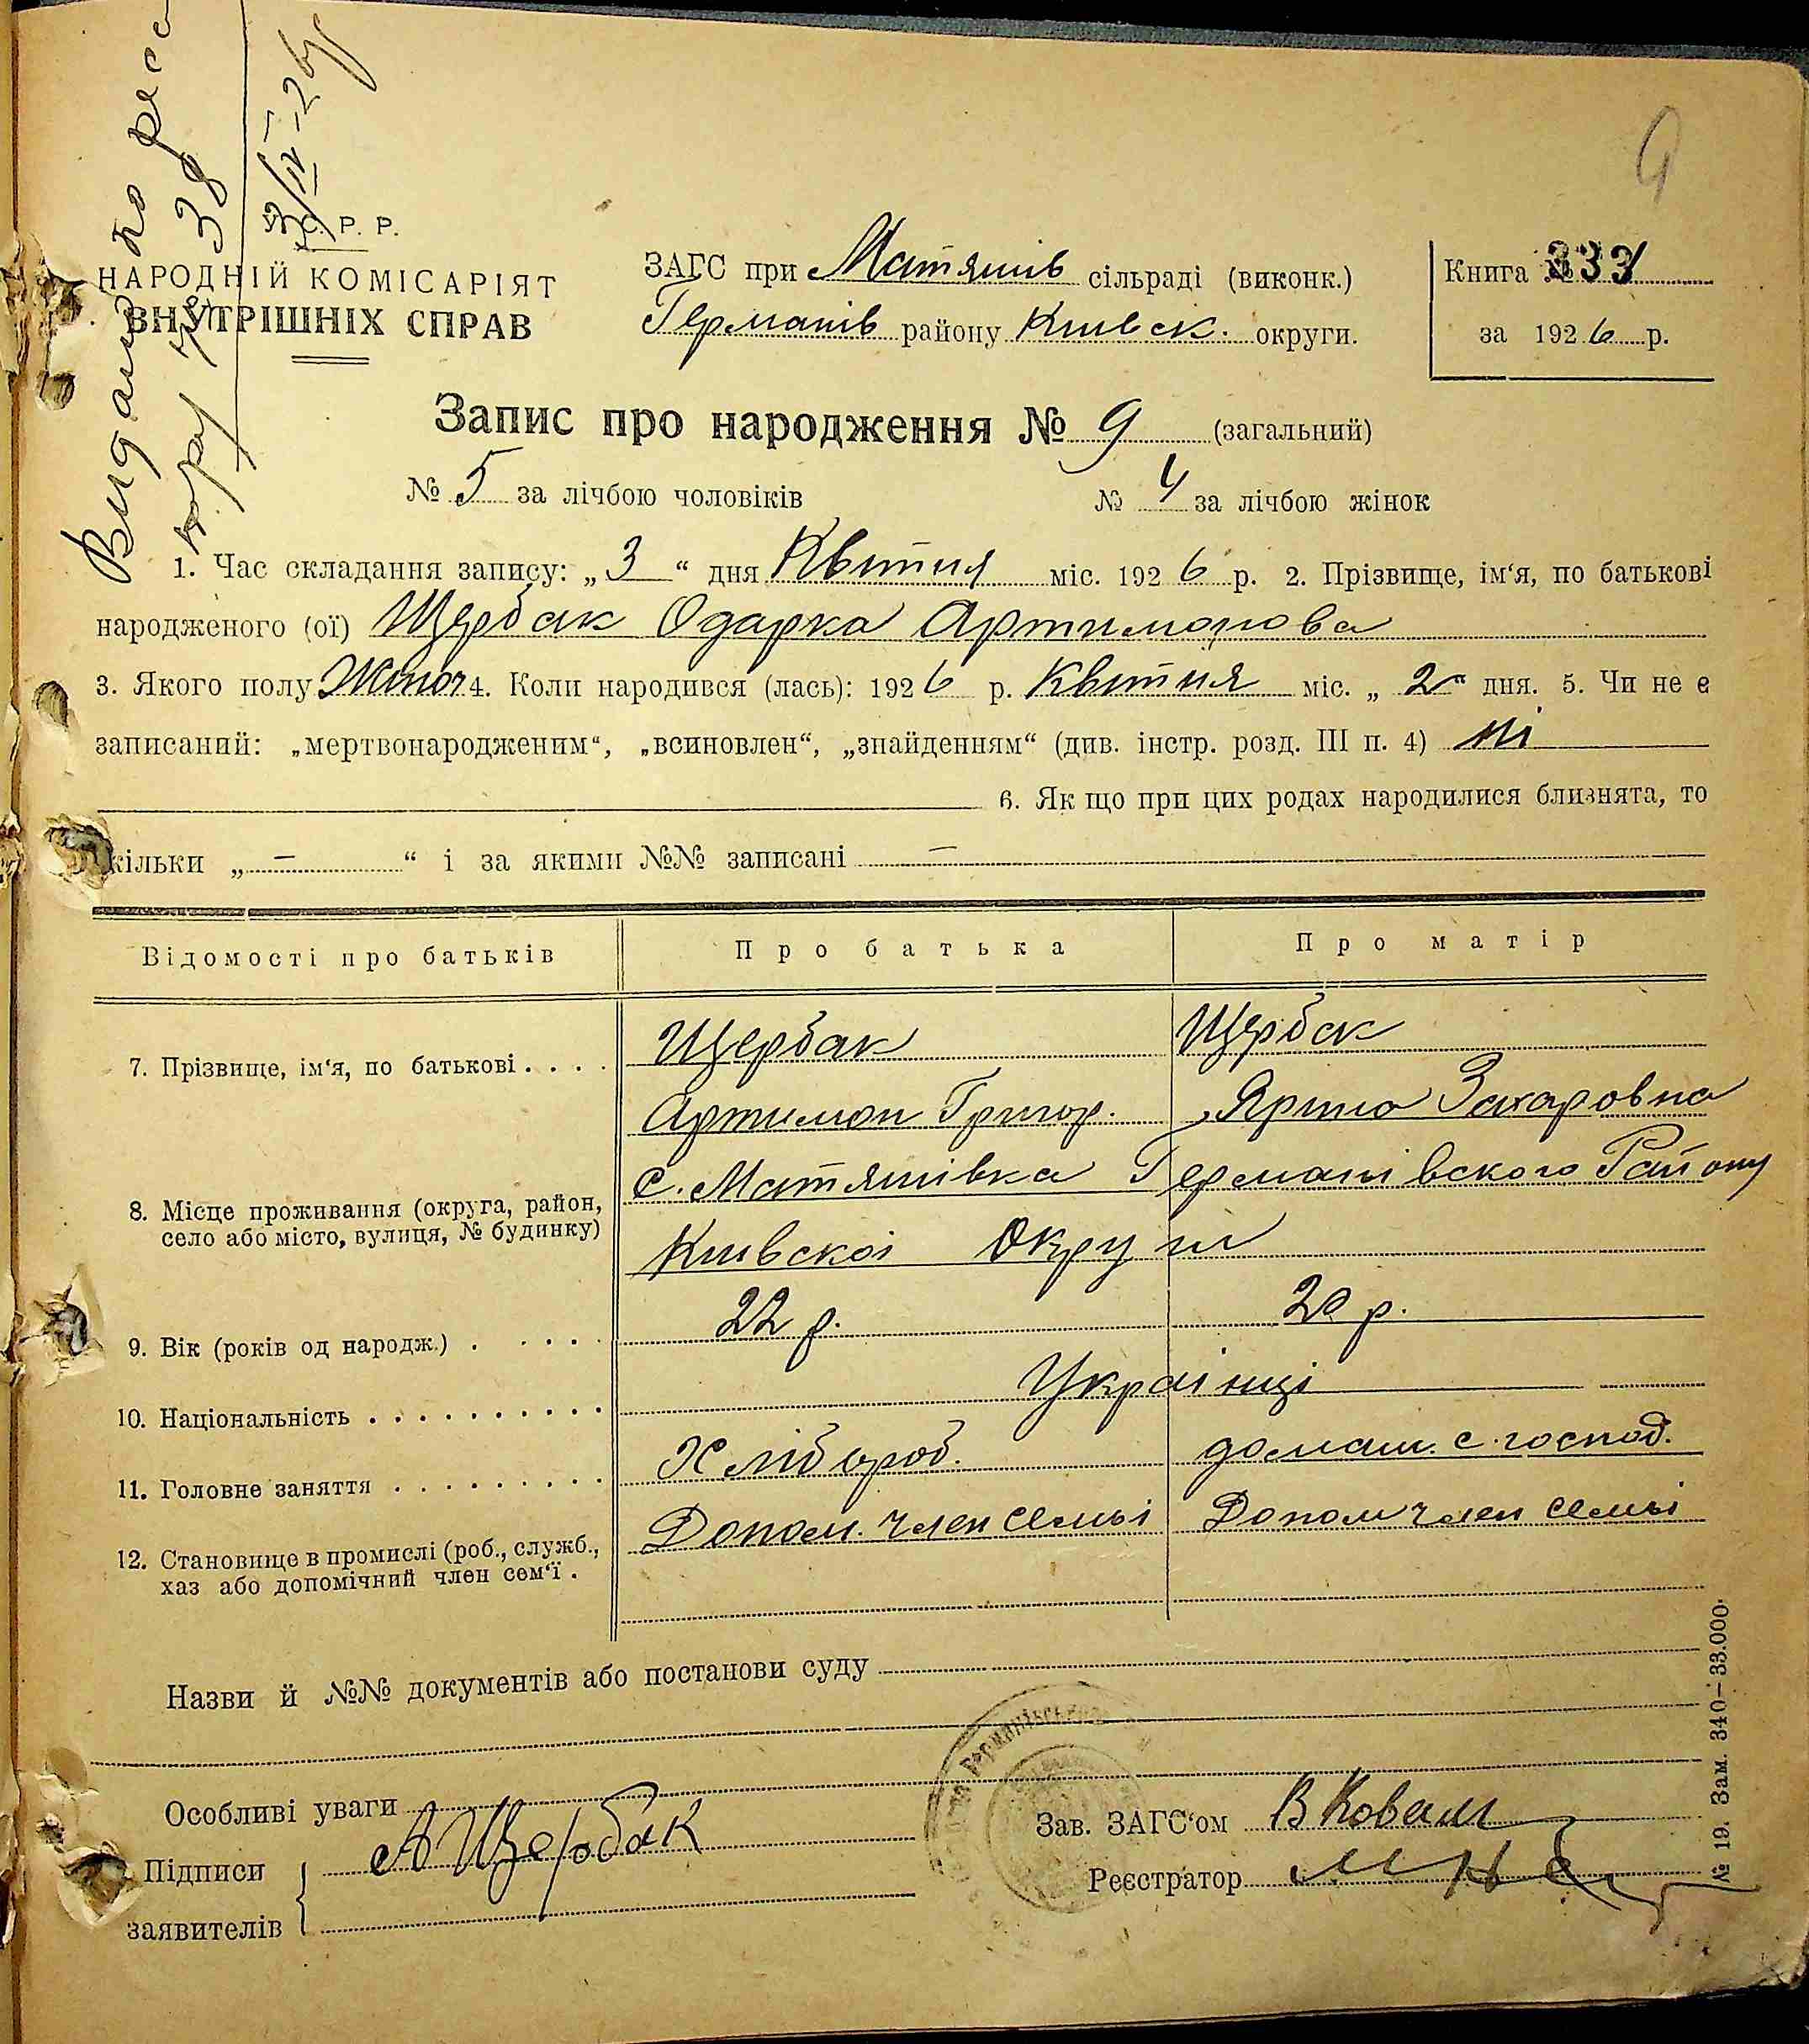 Видано по
38
3/IV-26 р
9
У. С. Р. Р.
НАРОДНІЙ КОМІСАРІЯТ
ВНУТРІШНІХ СПРАВ
ЗАГС при Матяшів сільраді (виконк.)
Германів району Київск. округи.
Книга № 333
за 1926 р.
Запис про народження № 9 (загальний)
№ 5 за лічбою чоловіків № 4 за лічбою жінок
1. Час складання запису: „3“ дня Квітня міс. 1926 р. 2. Прізвище, ім‘я, по батькові
народженого (ої) Щербак Одарка Артимонова
3. Якого полу Жіноч 4. Коли народився (лась): 1926 р. Квітня міс. „2“ дня. 5. Чи не є
записаний: „мертвонародженим“, „всиновлен“, „знайденням“ (див. інстр. розд. III п. 4) ні
6. Як що при цих родах народилися близнята, то
кільки „ — “ і за якими №№ записані —
Відомості про батьків Про батька Про матір
7. Прізвище, ім‘я, по батькові . . . . Щербак Щербак
Артимон Григор. Ярина Захаровна
8. Місце проживання (округа, район, село або місто, вулиця, № будинку) с. Матяшівка Германівского Району
Київскоі Округи
9. Вік (років од народж.) . . . . . 22 р. 20 р.
10. Національність . . . . . . . . . . Украінці
11. Головне заняття . . . . . . . . . Хлібороб. домаш. с. господ.
12. Становище в промислі (роб., служб., хаз або допомічний член сем‘ї . Допом. член семьі Допом член семьі
Назви й №№ документів або постанови суду
Особливі уваги
Підписи
заявителів
А Щербак
Зав. ЗАГС‘ом В Коваль
Реєстратор
№ 19. Зам. 340—33.000.